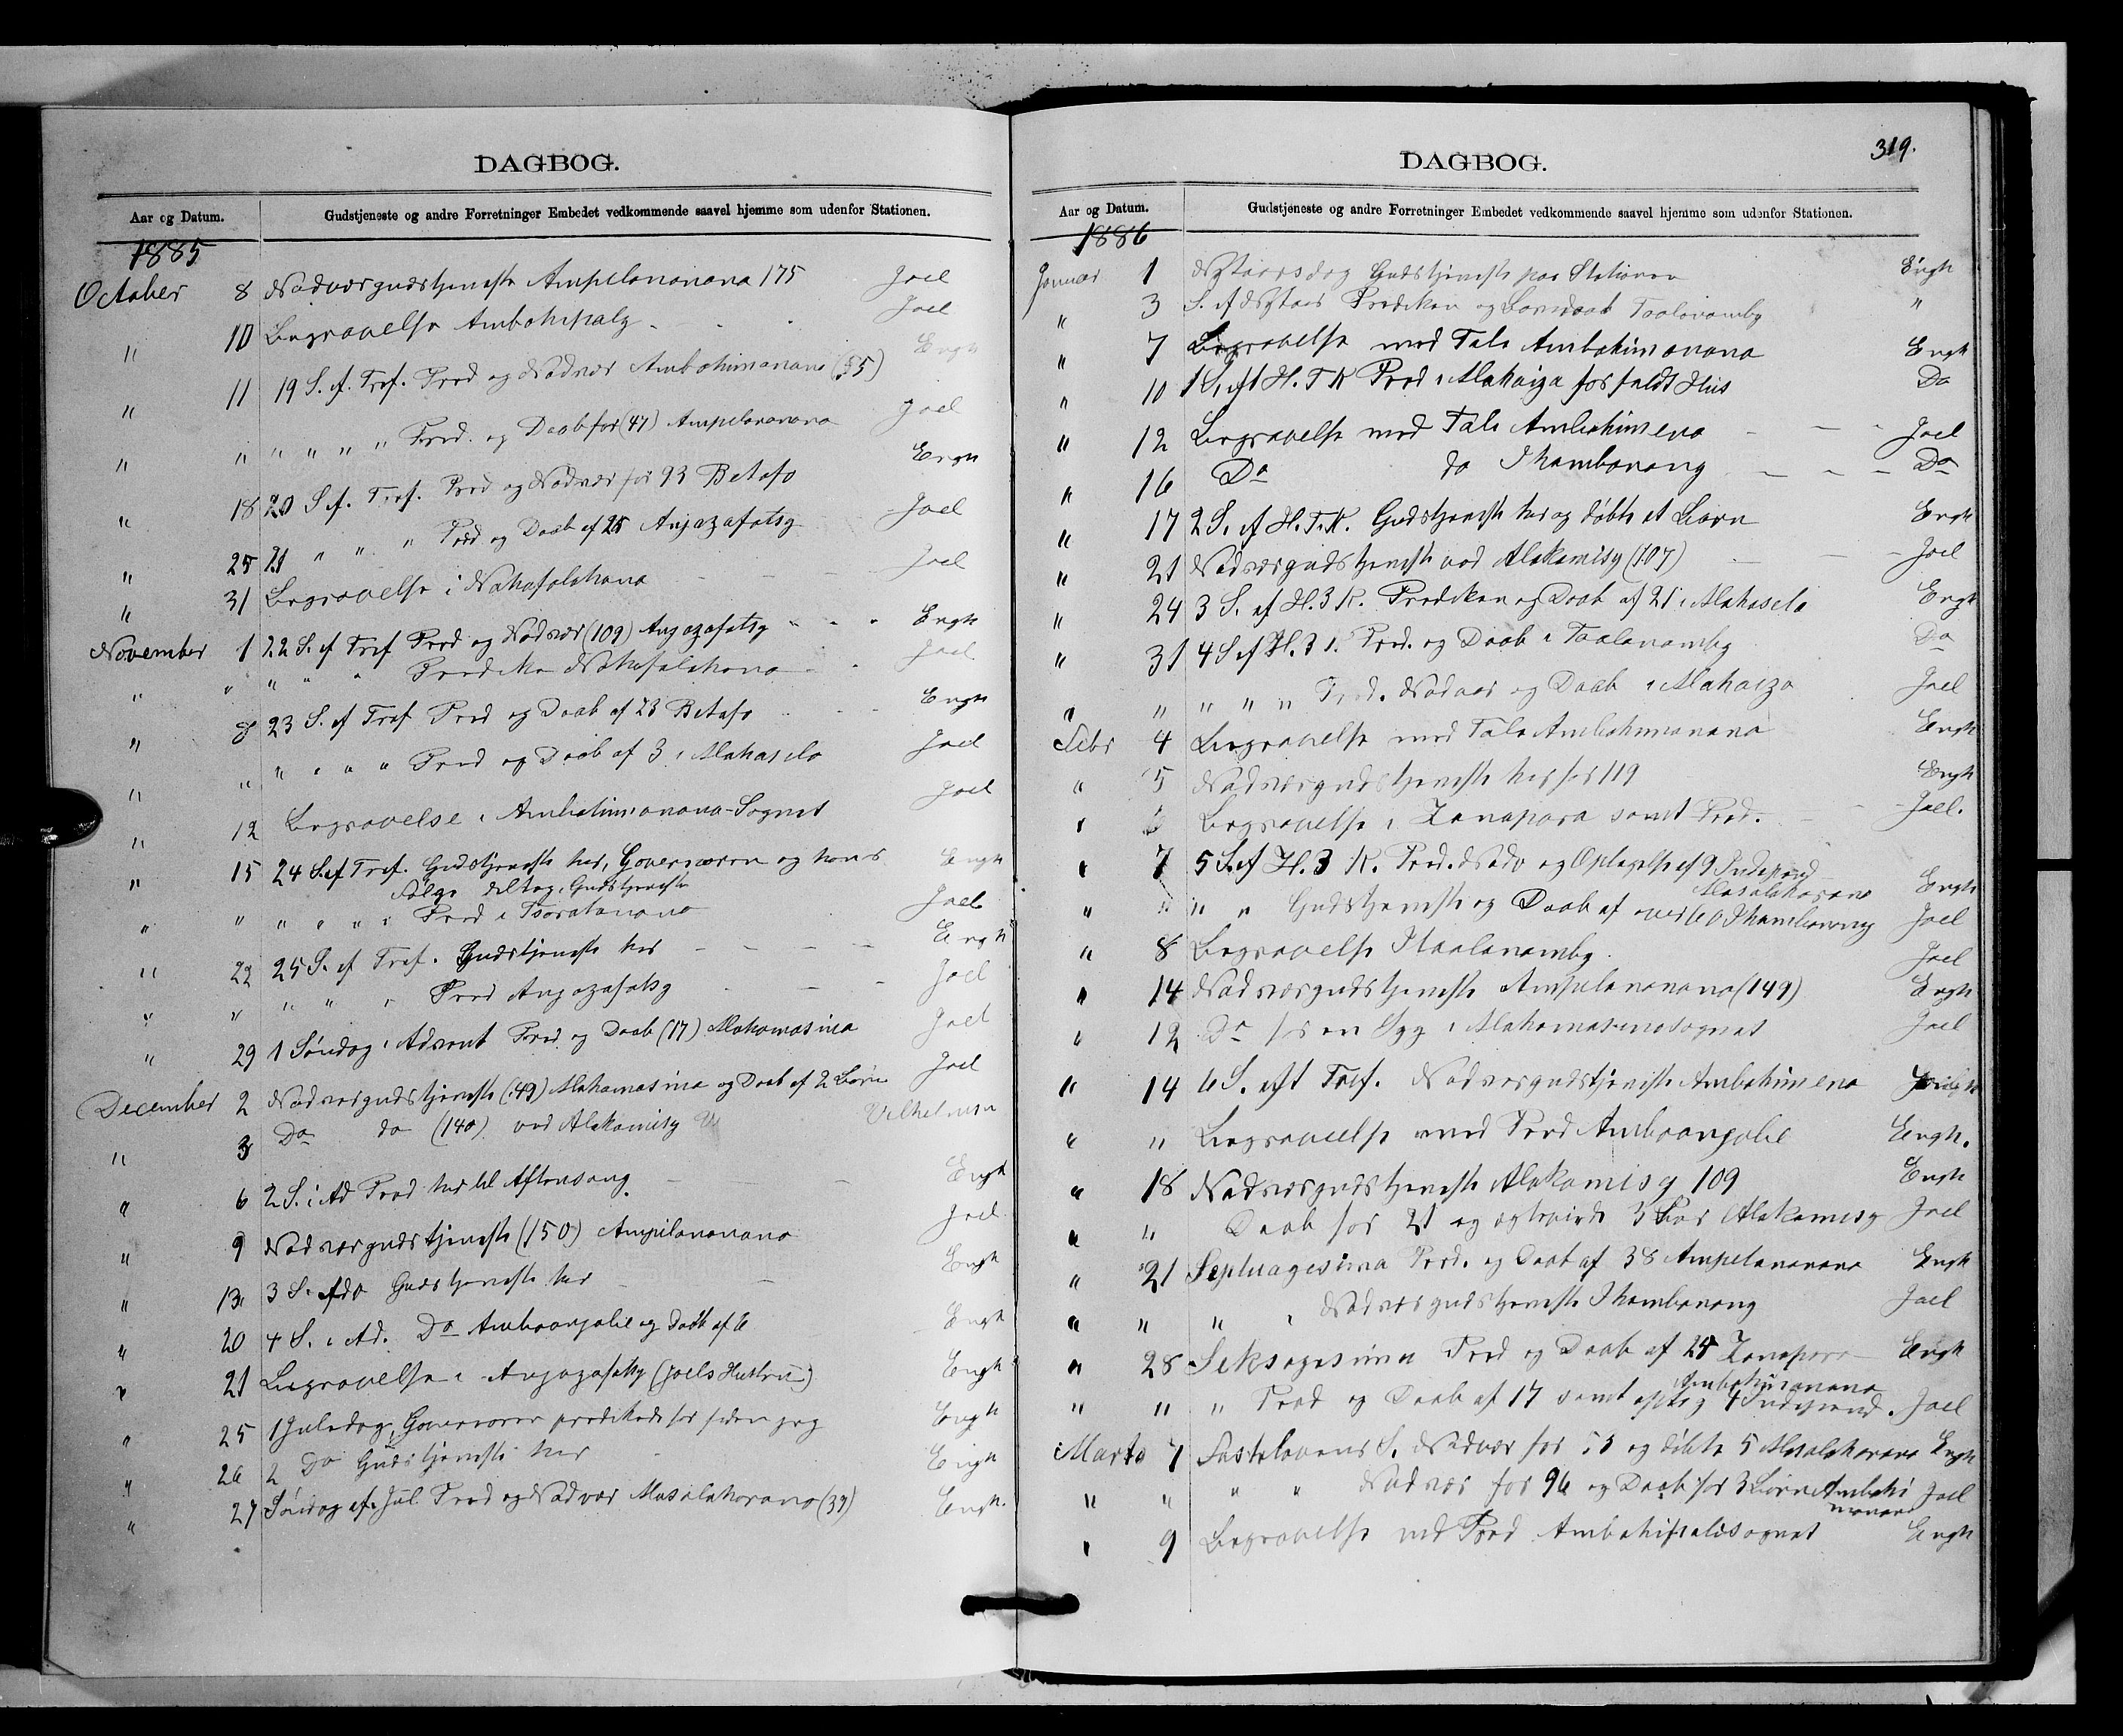 DAGBOG.
Aar og Datum. Gudstjeneste og andre Forretninger Embedet vedkommende saavel hjemme som udenfor Stationen.
1885
October 8 Nadvergudstjeneste Ampelanonana 175 Joel
" 10 Begravelse Ambohipaly Joel
" 11 19 S. ef. Tref. Præd og Nadver Ambohimanana (55) Engh
" " " " " " Præd. og Daab for (47) Ampelanonana Joel
" 18 20 S ef. Tref. Præd og Nadver for 93 Betafo Engh
" 25 21 " " " Præd og Daab af 25 Anjazafotsy Joel
" 31 Begravelse i Nahafalahana Joel
November 1 22 S. ef Tref Præd og Nadver (109) Anjazafotsy Engh
" " " " " Prædiken Nahafalahana Joel
" 8 23 S. ef Tref Præd og Daab af 23 Betafo Engh
" " " " " " Præd og Daab af 3 i Alahasilo Joel
" 12 Begravelse i Ambohimanana-Sognet Joel
" 15 24 S. ef Tref. Gudstjeneste her, Governøren og hans Engh
Følge deltog i Gudstjeneste
" " " " " " Præd i Tsaratanana Joel
" 22 25 S. ef Tref. Gudstjeneste her Engh
" " " " " Præd Anjazafotsy Joel
" 29 1 Søndag i Advent Præd og Daab (17) Mahamasina Joel
December 2 Nadvergudstjeneste (49) Mahamasina og Daab af 2 Børn Joel
" 3 Do do (140) ved Alakamisy Vilhelmsen
" 6 2 S. i Ad Præd her til Aftensang Engh
" 9 Nadvergudstjeneste (150) Ampelanonana Joel
" 13 3 S. Gudstjeneste her Engh
" 20 4 S. i Ad. Do Amboanjobe og Daab af 6 Engh
" 21 Begravelse i Anjazafotsy (Joels Hustru) Engh
" 25 1 Juledag, Governøren prædikede for siden jeg Engh
" 26 2 Do Gudstjeneste her Engh
" 27 Søndag ef. Jul Præd og Nadver Masalahorano (39) Engh.
DAGBOG. 319.
Aar og Datum. Gudstjeneste og andre Forretninger Embedet vedkommende saavel hjemme som udenfor Stationen.
1886
Januar 1 Nytaarsdag Gudstjeneste paa Stationen Engh
" 3 S. ef Nytaar Prædiken og Barnedaab Taolanamby "
" 7 Begravelse med Tale Ambohimanana Engh
" 10 1 S. eft H. T K Præd i Alahaiza for fuldt Hus Do
" 12 Begravelse med Tale Ambohimena Joel
" 16 Do do Ihambanany Do
" 17 2 S. ef H. T. K. Gudstjeneste her og døbte et Barn Engh
" 21 Nadvergudstjeneste ved Alakamisy (107) Joel
" 24 3 S. ef H. 3 K. Prædiken og Daab af 21 i Alahasilo Engh
" 31 4 S ef H. 3 K. Præd. og Daab i Taolanamby Do
" " " " " Præd. Nadver og Daab i Alahaiza Joel
Febr 4 Begravelse med Tale Ambohimanana Engh
" 5 Nadvergudstjeneste her for 119 Engh
" 6 Begravelse i Zanapara samt Præd. Joel.
" 7 5 S. ef H. 3 K. Præd. Nadv og Optagelse af 9
Masalahorano Engh
" " " " Gudstjeneste og Daab af over 60 Ihambanany Joel
" 8 Begravelse Itaolanamby. Joel
" 14 Nadvergudstjeneste Ampelanonana (149) Engh
" 12 Do for en Syg i Mahamasinasognet Joel
" 14 6 S. eft Tref. Nadvergudstjeneste Ambohimena
" " Begravelse med Præd Amboanjobe Engh.
" 18 Nadvergudstjeneste Alakamisy 109 Engh
" " Daab for 21 og ægteviede 3 Par Alakamisy Joel
" 21 Septuagesima Præd. og Daab af 38 Ampelanonana Engh
" " " " Nadvergudstjeneste Ihambanany Joel
" 28 Seksagesima Præd og Daab af 25 Zanapara Engh
Ambohimanana
" " " Præd og Daab af 17 samt 4 Joel
Marts 7 Fastelavens S. Nadver for 53 og døbte 5 Masalahorano Engh
" " " " Nadver for 96 og Daab for 3 Børn Ambohi Joel
manana
" 9 Begravelse med Præd Ambohipalisognet Engh